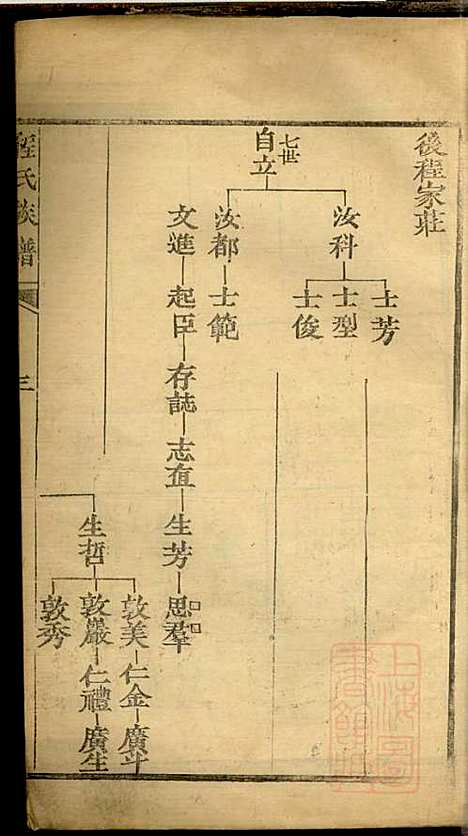 後程家莊
七世
自立
汝科
士芳
士型
士俊
汝都
士範
文進
起臣
存誌
志值
生芳
思羣
生哲
敦美
仁金
廣斗
敦嚴
仁禮
廣生
敦秀
程氏族譜
三
上海圖書館藏